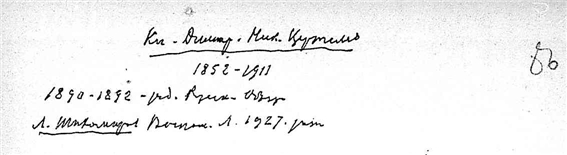 Кн. Дмитр. Ник. Цертелев
1852-1911
1890-1892 - ред. Русск. Обозр
Л. Воспом. Л. 1927.
56